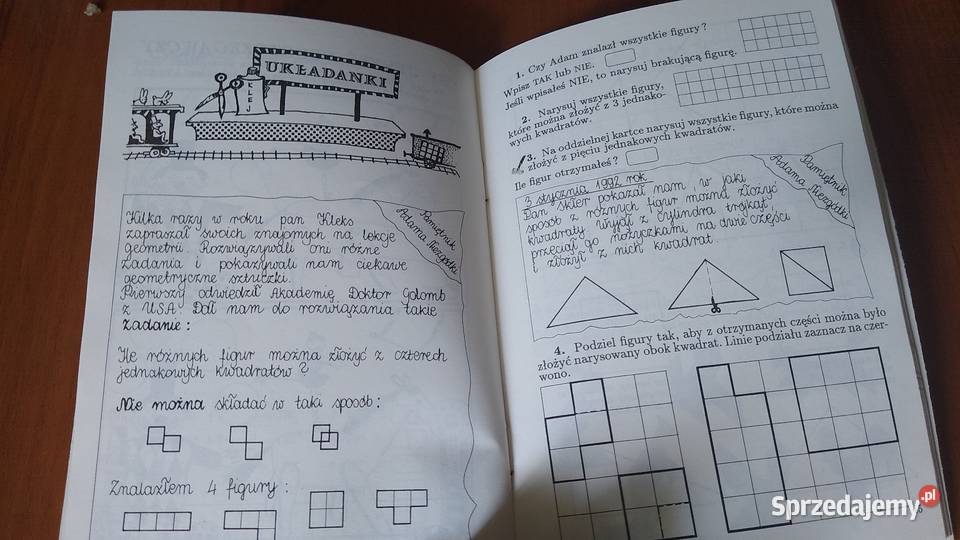 UKŁADANKI
KLEJ
Pamiętnik
Adama Niezgódki
Kilka razy w roku pan Kleks
zapraszał swoich znajomych na lekcje
geometrii. Rozwiązywali oni różne
zadania i pokazywali nam ciekawe
geometryczne sztuczki.
Pierwszy odwiedził Akademię Doktor Golomb
z USA. Dał nam do rozwiązania takie
zadanie:
Ile różnych figur można złożyć z czterech
jednakowych kwadratów?
Nie można składać w taki sposób:
Znalazłem 4 figury:
1. Czy Adam znalazł wszystkie figury?
Wpisz TAK lub NIE.
Jeśli wpisałeś NIE, to narysuj brakującą figurę.
2. Narysuj wszystkie figury,
które można złożyć z 3 jednako-
wych kwadratów.
3. Na oddzielnej kartce narysuj wszystkie figury, które można
złożyć z pięciu jednakowych kwadratów.
Ile figur otrzymałeś?
Pamiętnik
Adama Niezgódki
3 stycznia 1992 rok
Pan Skier pokazał nam, w jaki
sposób z różnych figur można złożyć
kwadraty. Wyjął z cylindra trójkąt,
przeciął go nożyczkami na dwie części
i złożył z nich kwadrat.
4. Podziel figury tak, aby z otrzymanych części można było
złożyć narysowany obok kwadrat. Linie podziału zaznacz na czer-
wono.
Sprzedajemy.pl